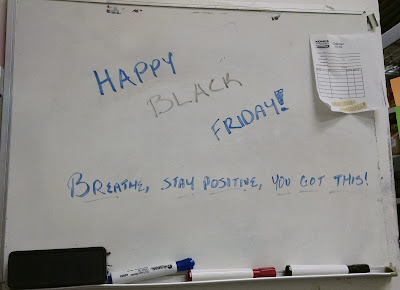 HAPPY
BLACK
FRIDAY!
BREATHE, STAY POSITIVE, YOU GOT THIS!